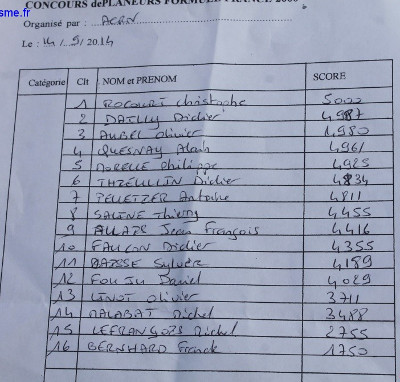 sme.fr
CONCOURS de PLANEURS FORMULE FRANCE 2000
Organisé par : ACRN
Le : 14 / 9 / 2014
Catégorie Clt NOM et PRENOM SCORE
1 ROCOURT Christophe 5000
2 DAILLY Didier 4987
3 AUBEL Olivier 4980
4 QUESNAY Alain 4961
5 MORELLE Philippe 4925
6 THIEULLIN Didier 4834
7 PELLETIER Antoine 4811
8 SALINE Thierry 4455
9 ALLAIS Jean François 4416
10 FAUCON Didier 4355
11 BAISSE Sylvère 4189
12 Daniel 4029
13 LINOT Olivier 3711
14 MALABAT Michel 3488
15 LEFRANÇOIS Michel 2755
16 BERNHARD Franck 1750